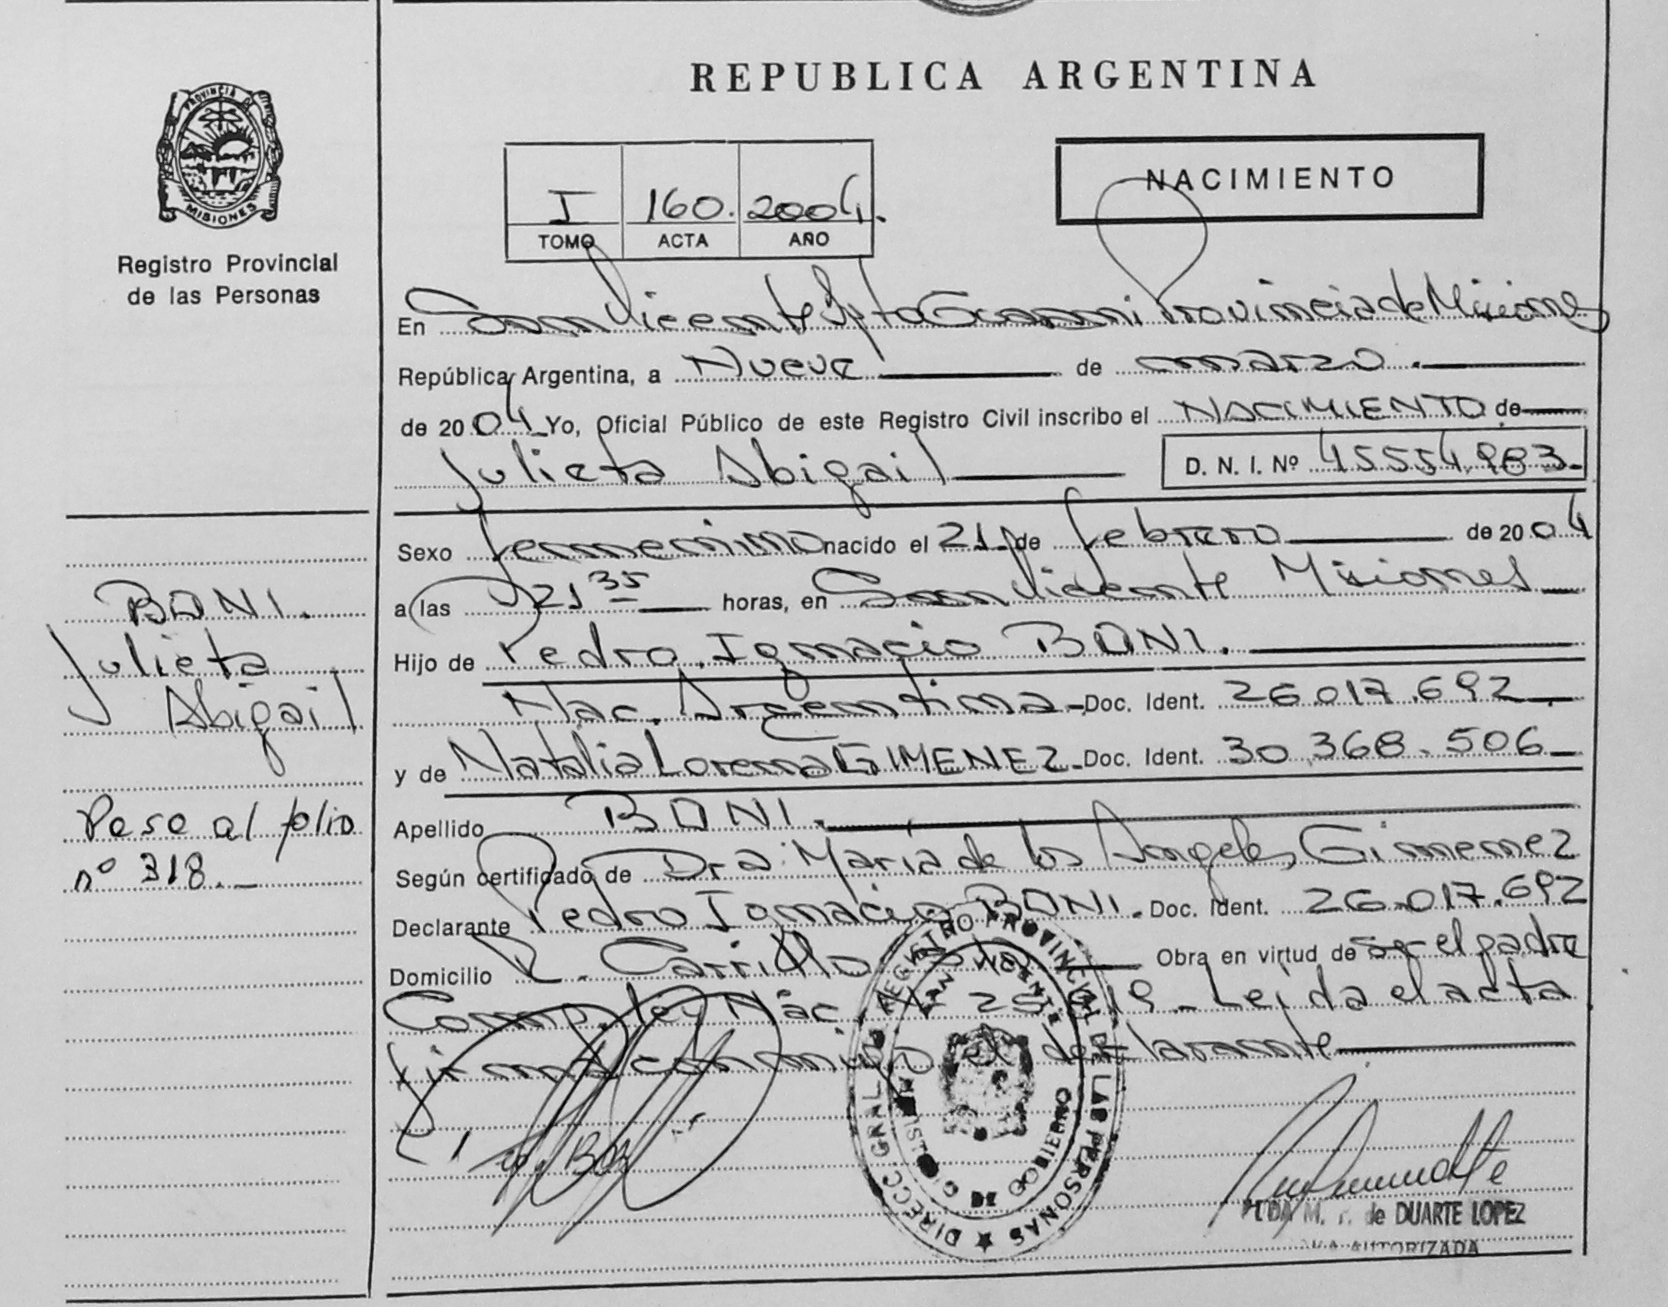 REPUBLICA ARGENTINA
PROVINCIA DE
MISIONES
Registro Provincial
de las Personas
I 160. 2004.
TOMO ACTA AÑO
NACIMIENTO
En San Vicente Dpto Guarani Provincia de Misiones
República Argentina, a Nueve de marzo.
de 2004 Yo, Oficial Público de este Registro Civil inscribo el NACIMIENTO de
Julieta Abigail D. N. I. Nº 45554.983.
Sexo femenino nacido el 21 de febrero de 2004
a las 21 35 horas, en San Vicente Misiones
Hijo de Pedro Ignacio BONI.
Nac. Argentina - Doc. Ident. 26.017.692
y de Natalia Lorena GIMENEZ - Doc. Ident. 30.368.506
Apellido BONI.
Según certificado de Dra. María de los Angeles Gimenez
Declarante Pedro Ignacio BONI. Doc. Ident. 26.017.692
Domicilio R. Carrillo Obra en virtud de ser el padre
Comp. Nac. Nº Leída el acta
firma conmigo el declarante
BONI.
Julieta
Abigail
Pase al folio
nº 318.
DIRECC. GRAL. REGISTRO PROVINCIAL DE LAS PERSONAS
SAN VICENTE
MINISTERIO DE GOBIERNO
M. de DUARTE LOPEZ
AUTORIZADA